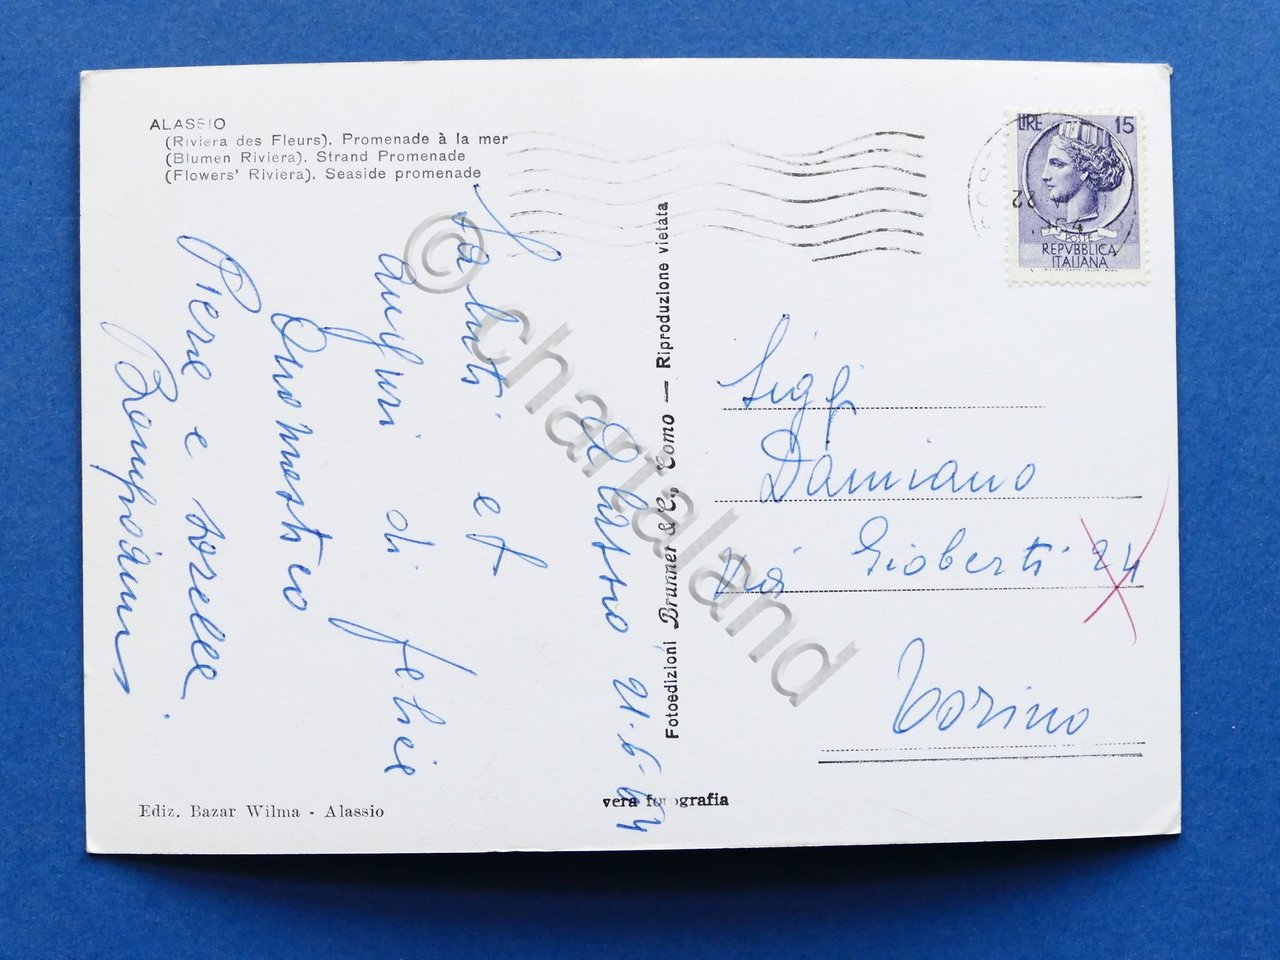 ALASSIO
(Riviera des Fleurs). Promenade à la mer
(Blumen Riviera). Strand Promenade
(Flowers' Riviera). Seaside promenade
Alassio, 21-6-64
Saluti et
auguri di felice
Onomastico
Piere e sorelle
Ediz. Bazar Wilma - Alassio
Fotoedizioni Brunner & C., Como — Riproduzione vietata
vera fotografia
LIRE 15
22
POSTE
REPVBBLICA
ITALIANA
Sigg
Damiano
Via Gioberti 24
Torino
© chartaland